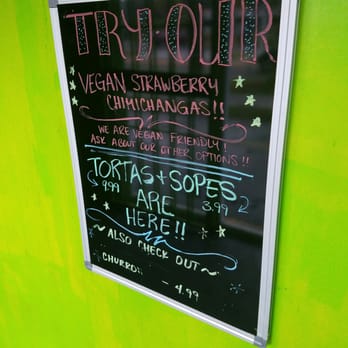 TRY • OUR
VEGAN STRAWBERRY
CHIMICHANGAS!!
WE ARE VEGAN FRIENDLY!
ASK ABOUT OUR OTHER OPTIONS!!
TORTAS + SOPES
9.99 ARE 3.99
HERE!!
~ALSO CHECK OUT~
- 4.99